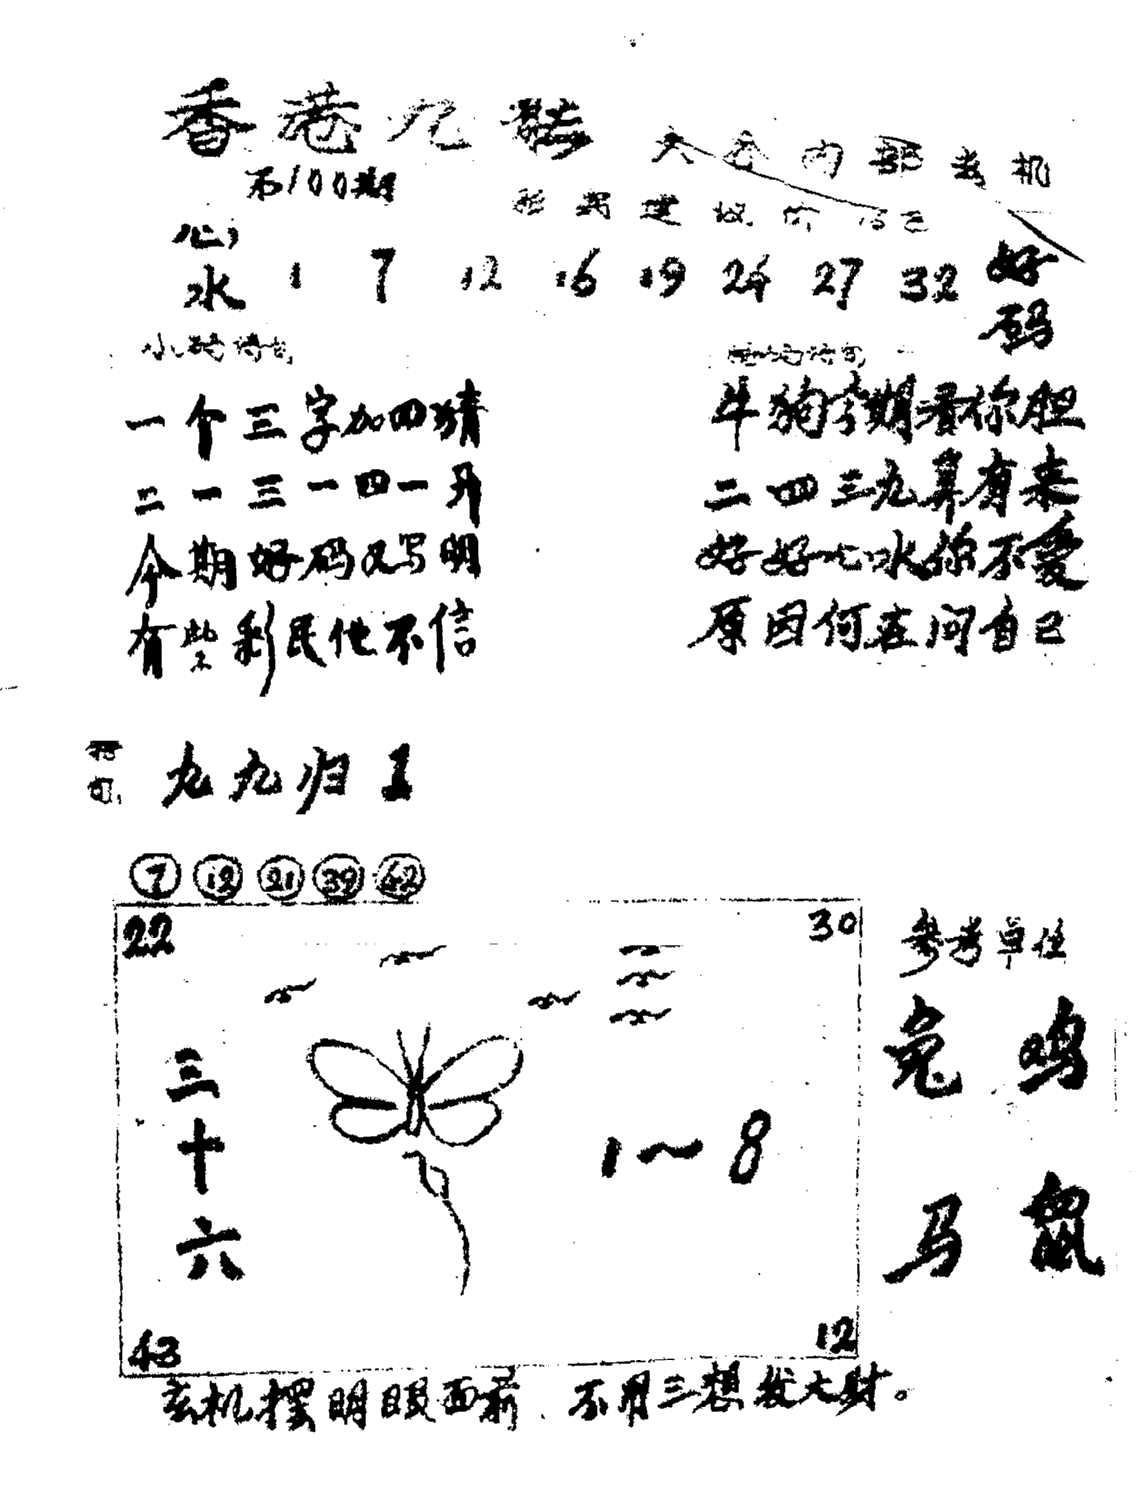 香港九龍
六合内部玄机
第100期
心水 1 7 12 16 19 24 27 32 好码
一个三字加四猜
二一三一四一升
今期好码又写明
有些彩民他不信
牛狗字期看你胆
二四三九算有来
好好心水你不爱
原因何在问自己
九九归1
7 12 21 39 42
22 30
三十六
1~8
43 12
参考单位
兔 鸡
马 鼠
玄机摆明眼面前 不用三想发大财。